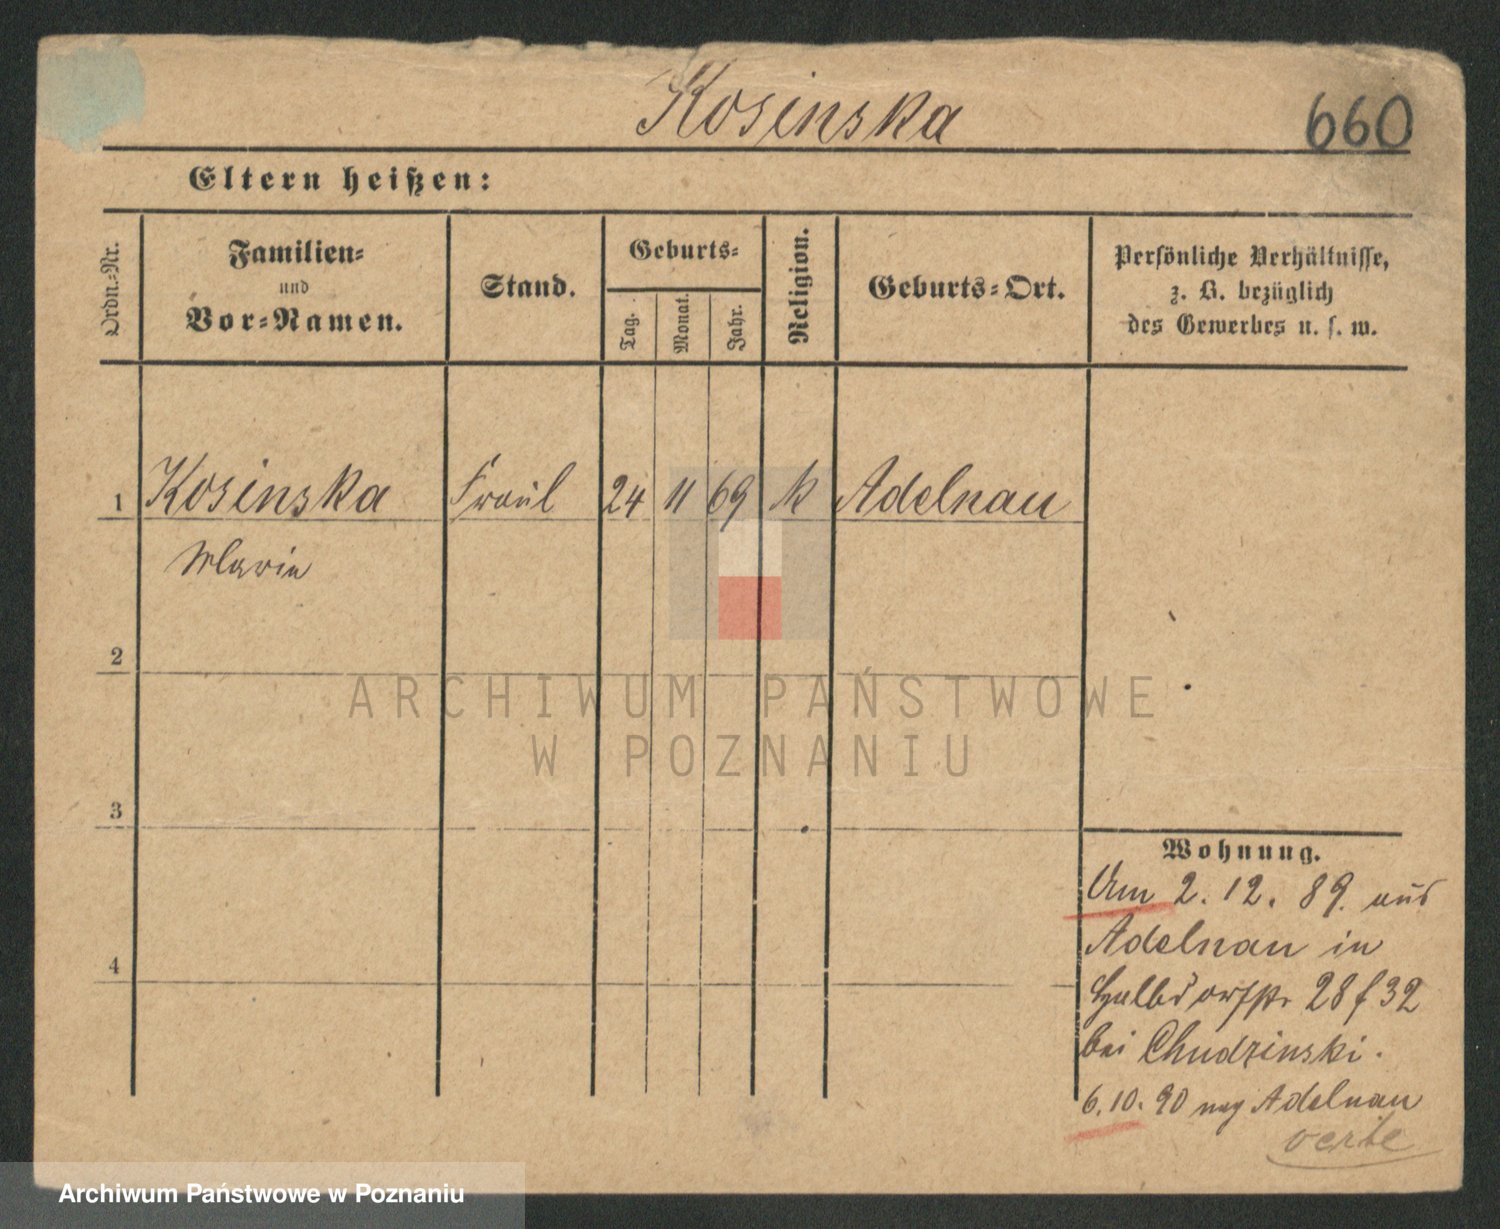 Kosinska
660
Eltern heißen:
Ordn.-Nr.
Familien-
und
Vor-Namen.
Stand.
Geburts-
Tag.
Monat.
Jahr.
Religion.
Geburts-Ort.
Persönliche Verhältnisse,
z. B. bezüglich
des Gewerbes u. s. w.
1 Kosinska Fraul 24 11 69 k Adelnau
Marie
2
3
4
ARCHIWUM PAŃSTWOWE
W POZNANIU
Wohnung.
Am 2. 12. 89. aus
Adelnau in
Halbdorfstr 28 f 32
bei Chudzinski.
6. 10. 90 nach Adelnau
Archiwum Państwowe w Poznaniu